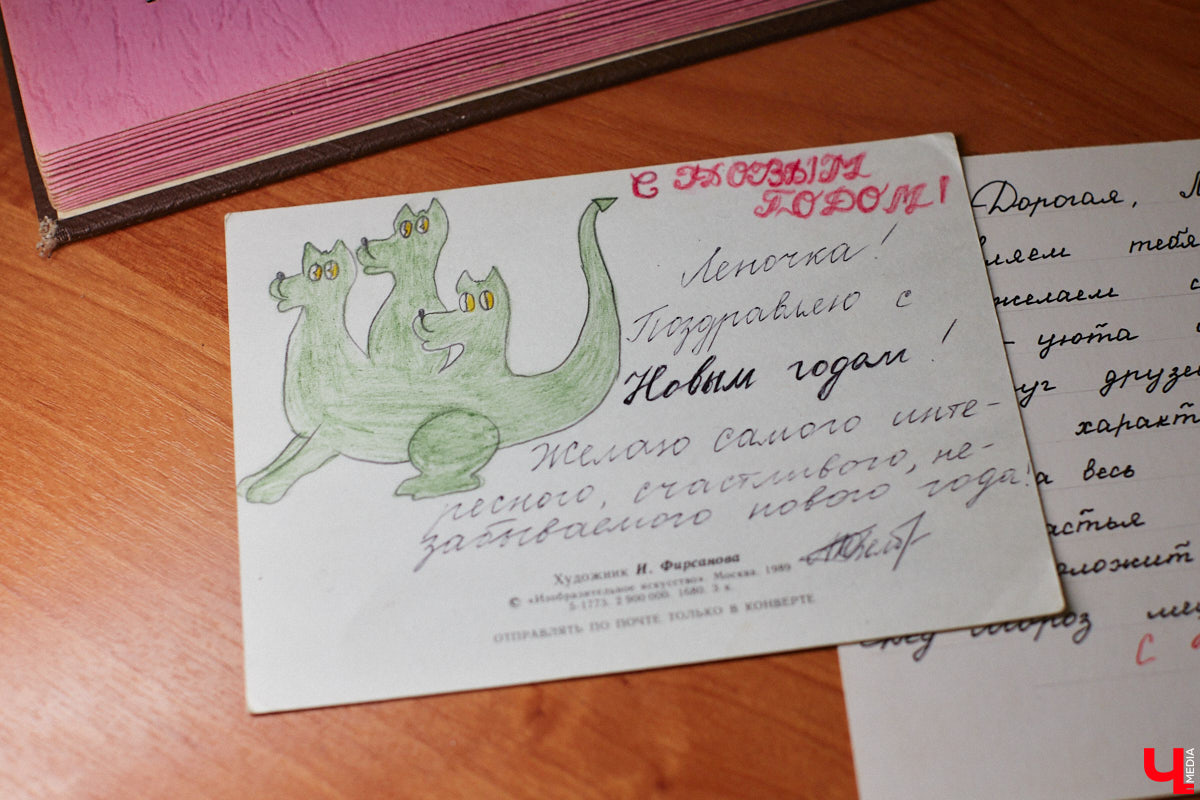 С НОВЫМ
ГОДОМ!
Леночка!
Поздравляю с
Новым годам!
Желаю самого инте-
ресного, счастливого, не-
забываемого нового года!
Художник И. Фирсанова
© «Изобразительное искусство». Москва. 1989
5-1773. 2 900 000. 1680. 3 к.
ОТПРАВЛЯТЬ ПО ПОЧТЕ ТОЛЬКО В КОНВЕРТЕ
Дорогая,
ляем тебя
желаем с
уюта
друзей
характ
а весь
астья
оложит
ороз
С
Ч MEDIA